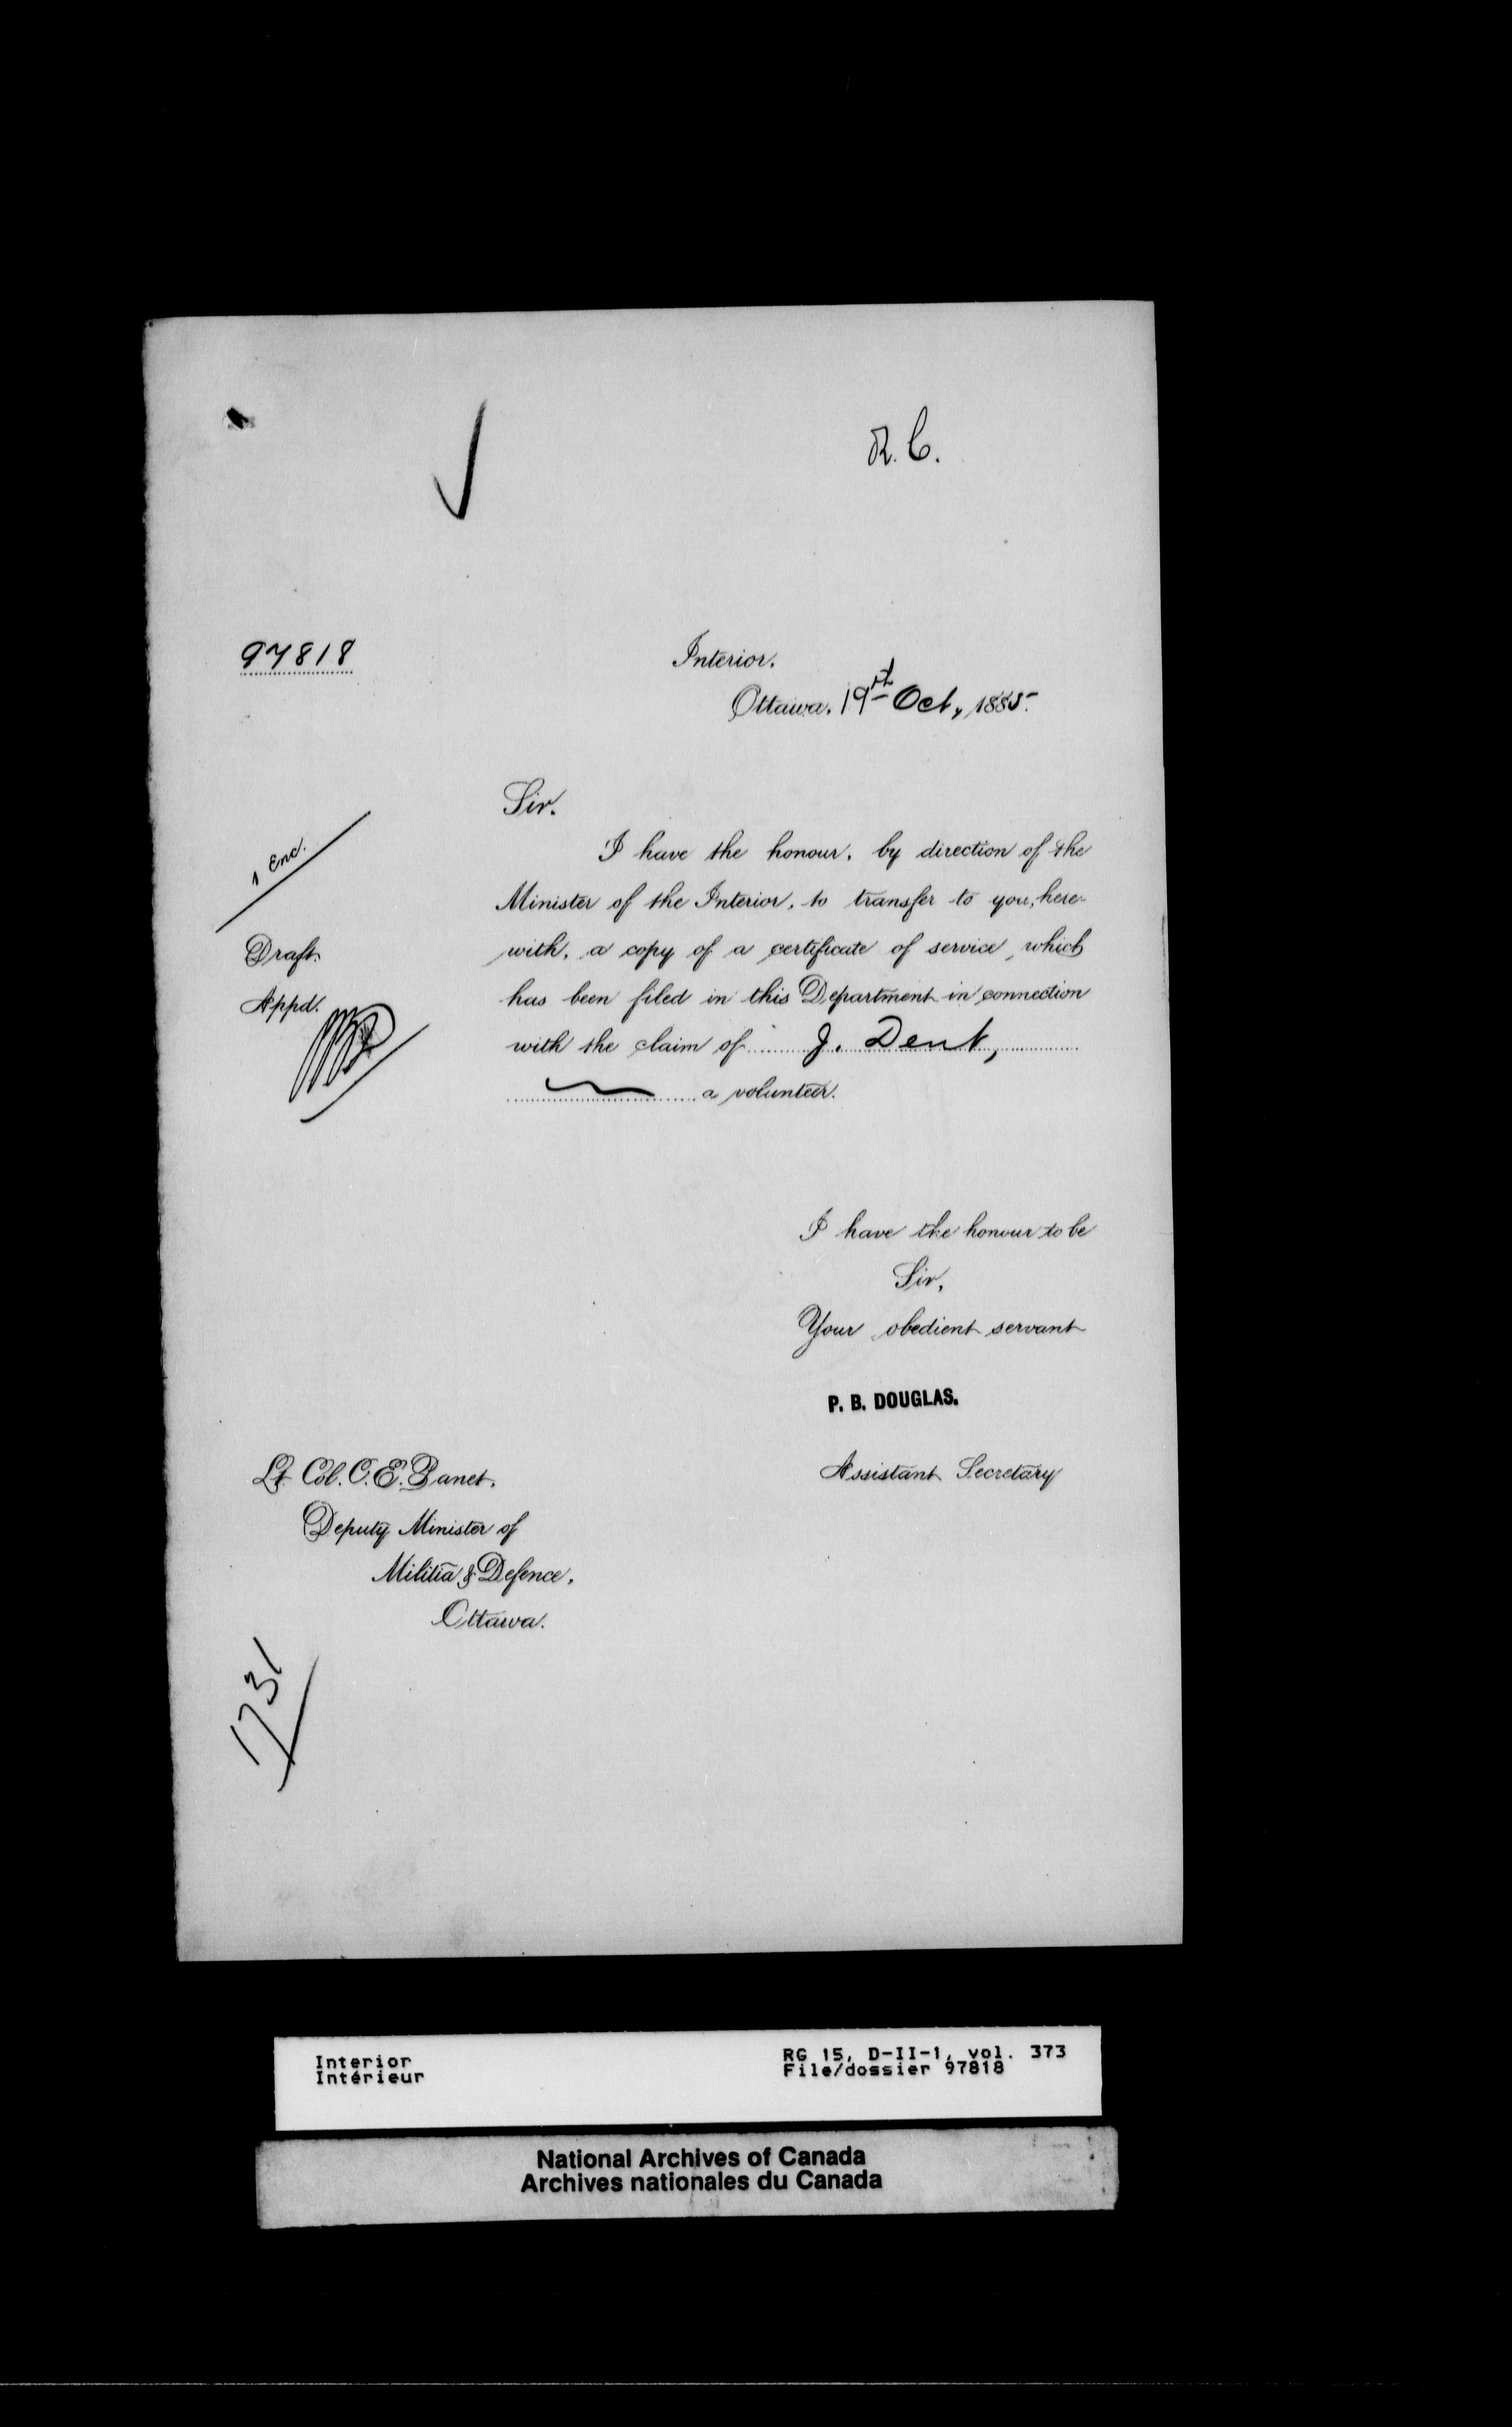 R. C.
97818
Interior.
Ottawa, 19th Oct, 1885.
Sir.
1 Enc.
I have the honour, by direction of the
Minister of the Interior, to transfer to you, here-
Draft.
with, a copy of a certificate of service, which
Appd.
has been filed in this Department in connection
with the claim of J. Dent,
a volunteer.
I have the honour to be
Sir,
Your obedient servant
P. B. DOUGLAS.
Assistant Secretary
Lt. Col. C. E. Panet,
Deputy Minister of
Militia & Defence,
Ottawa.
1731
Interior
Intérieur
RG 15, D-II-1, vol. 373
File/dossier 97818
National Archives of Canada
Archives nationales du Canada